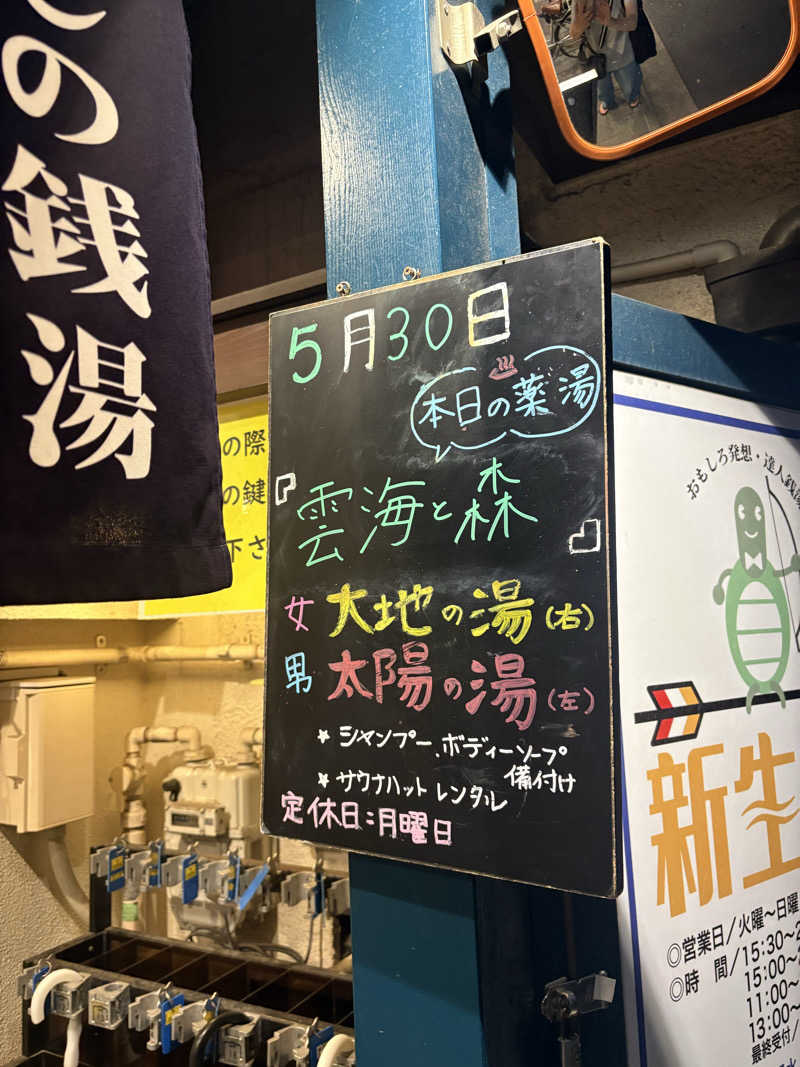 の銭湯
5月30日
本日の薬湯
『雲海と森』
女 大地の湯(右)
男 太陽の湯(左)
★シャンプー、ボディーソープ
備付け
★サウナハットレンタル
定休日：月曜日
の際
の鍵
下さ
おもしろ発想・達人銭
新生
◎営業日／火曜〜日曜
◎時 間／15:30〜
15:00〜
11:00〜
13:00〜
最終受付／